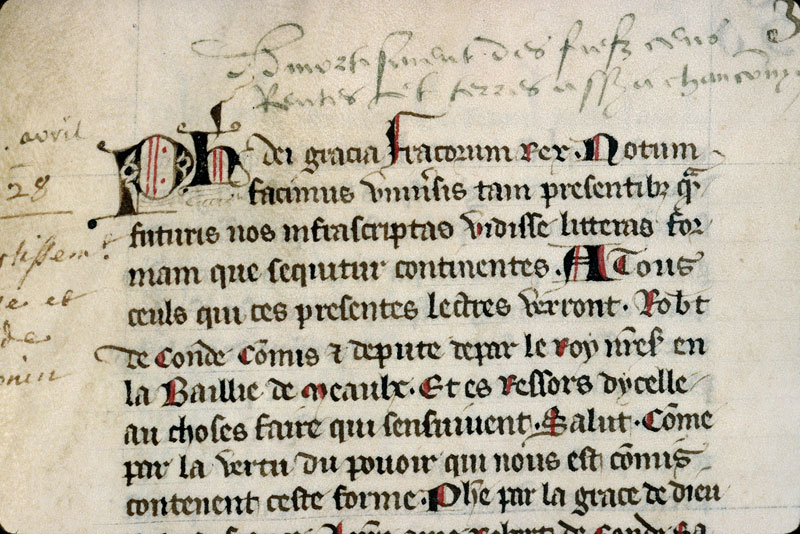 3
Amortissement des fiefz cens
Rentes et terres assis a chancony
avril
28
Ph dei gracia fracorum rex. Notum
facimus vniuersis tam presentibz qr
futuris nos infrascriptas vidisse litteras for
mam que sequitur continentes. A Tous
ceuls qui ces presentes lectres verront. Robt
de Conde Comis & depute depar le roy nres en
la Baillie de meaulx. Et es ressors dycelle
au choses faire qui sensuiuent. Salut. Come
par la vertu du pouoir qui nous est comis
contenent ceste forme. Phe par la grace de dieu